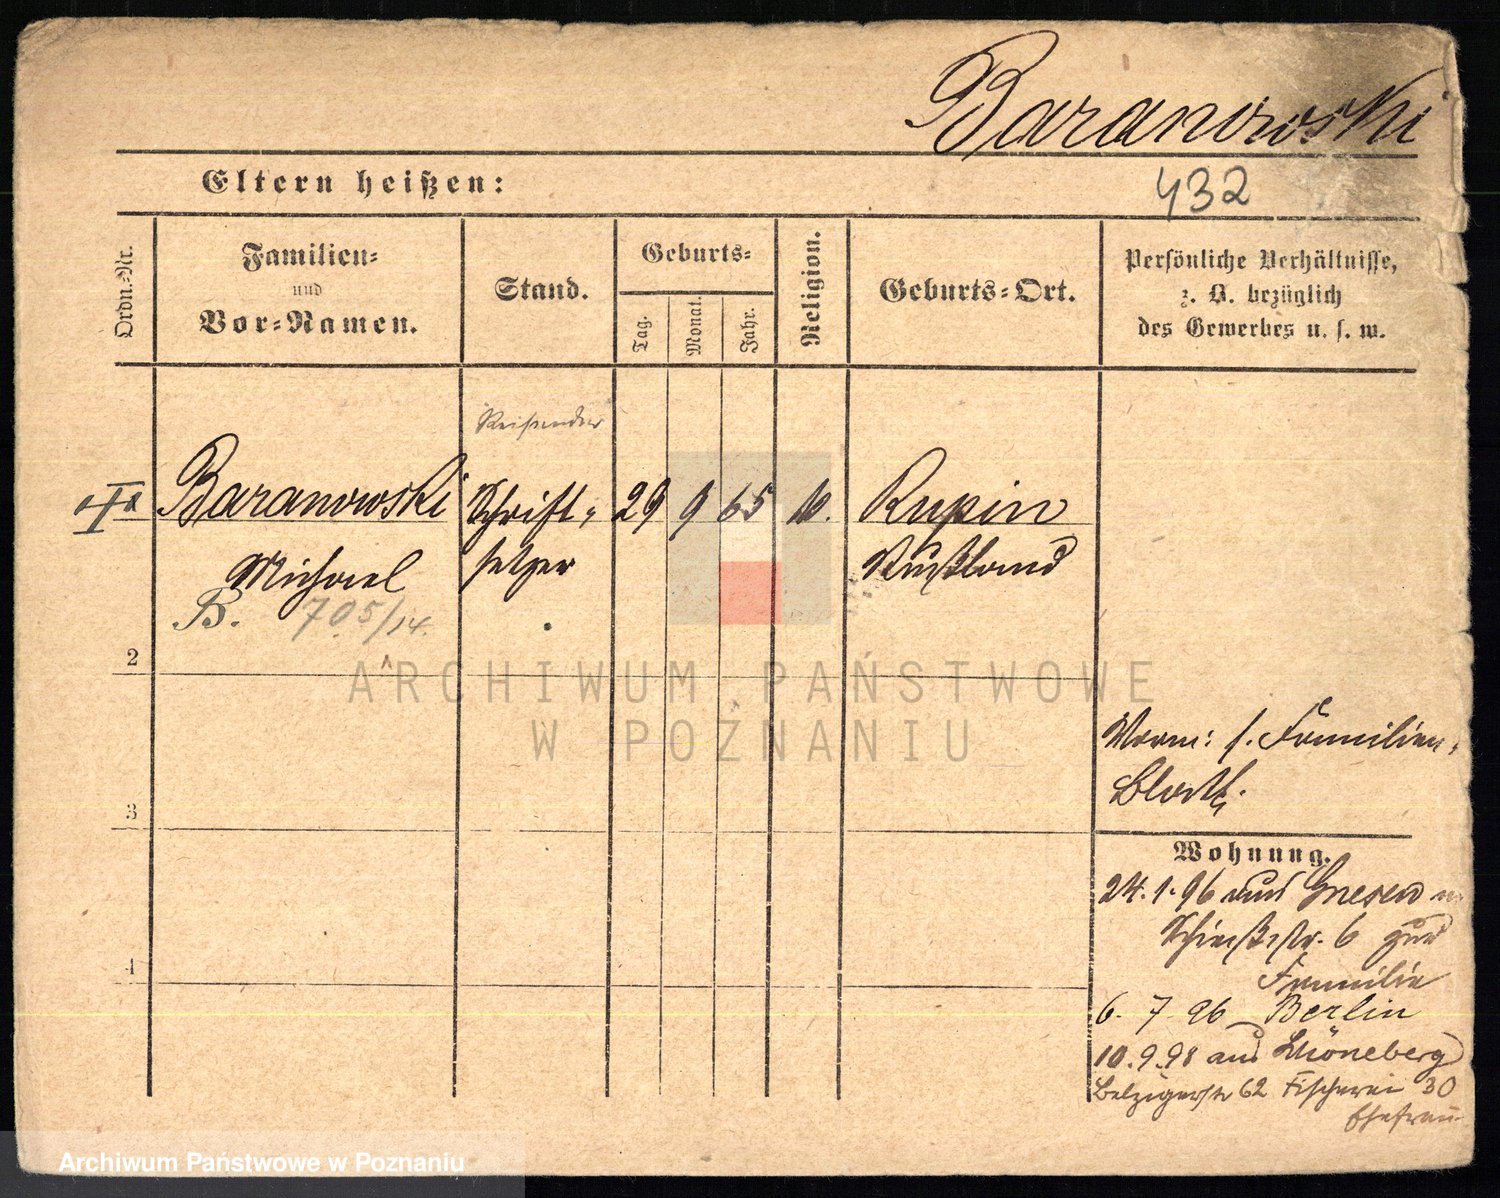 Baranowski
432
Eltern heißen:
Ordn.-Nr.
Familien-
und
Vor-Namen.
Stand.
Geburts-
Tag.
Monat.
Jahr.
Religion.
Geburts-Ort.
Persönliche Verhältnisse,
z. B. bezüglich
des Gewerbes u. s. w.
Reisender
Baranowski Schrift- 29 9 65 Rupin
Michael setzer Rußland
B. 705/14.
2
ARCHIWUM PAŃSTWOWE
W POZNANIU
Verm: s. Familien-
3
Wohnung.
24.1.96 aus Gnesen
Schießstr. 6 zur
4 Familie
6. 7 96 Berlin
10.9.98 aus Schöneberg
Belzigerstr 62 Fischerei 30
Ehefrau
Archiwum Państwowe w Poznaniu